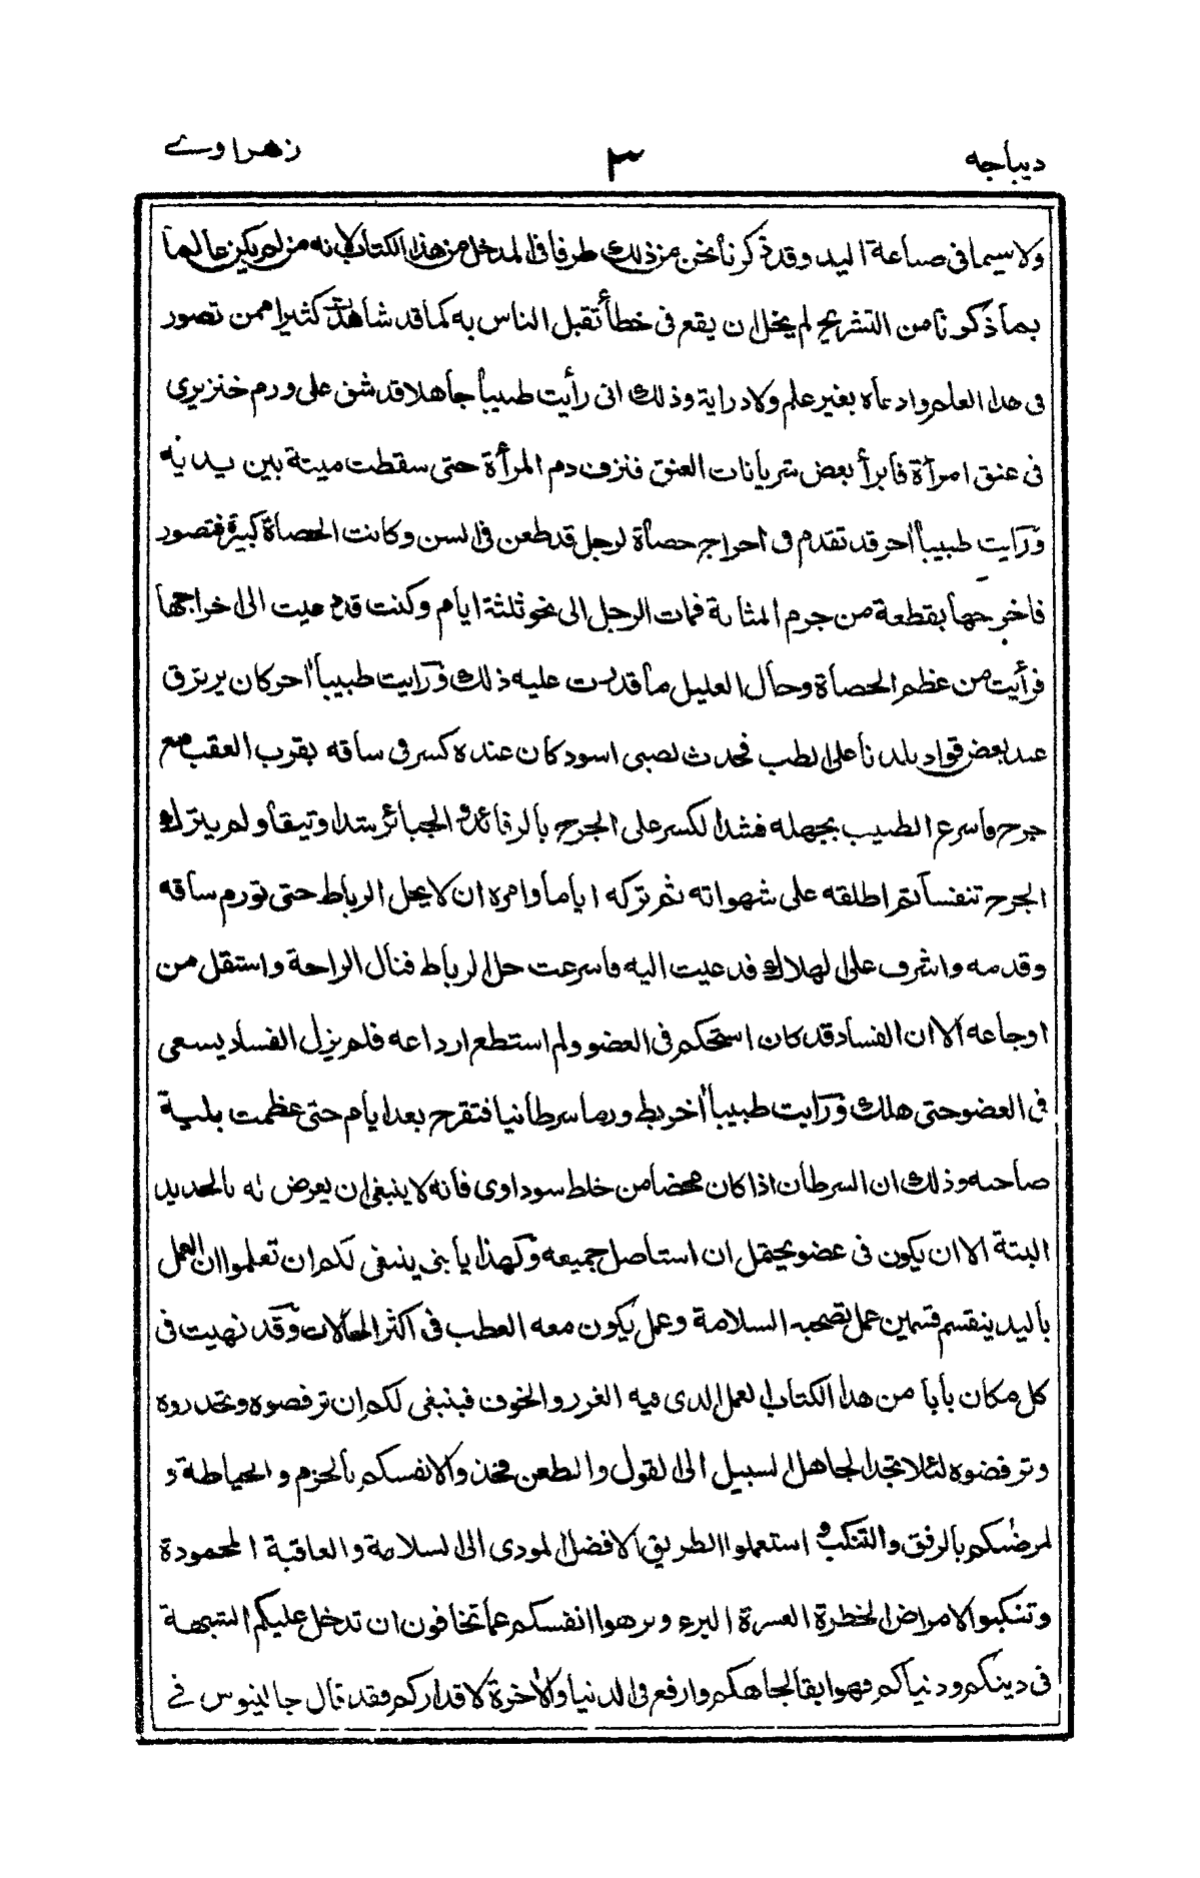 ديباجه ٣ زهراوے
ولا سيما فى صناعة اليد وقد ذكرنا نحن من ذلك طرفا فى المدخل من هذا الكتاب لانه من لم يكن عالما
بما ذكرنا من التشريح لم يخل ان يقع فى خطأ تقبل الناس به كما قد شاهدت كثيرا ممن تصور
فى هذا العلم وادعاه بغير علم ولا دراية وذلك انى رأيت طبيبا جاهلا قد شق على ورم خنزيرى
فى عنق امرأة فابرأ بعض شريانات العنق فنزف دم المرأة حتى سقطت ميتة بين يديه
ورأيت طبيبا أخر قد تقدم فى اخراج حصاة لرجل قد طعن فى السن وكانت الحصاة كبيرة فتصور
فاخرجها بقطعة من جرم المثانة فمات الرجل الى نحو ثلثة ايام وكنت قد دعيت الى اخراجها
فرأيت من عظم الحصاة وحال العليل ما قدرت عليه ذلك ورأيت طبيبا أخر كان يرتزق
عند بعض قواد بلدنا على الطب فحدث لصبى اسود كان عنده كسر فى ساقه بقرب العقب مع
جرح فاسرع الطبيب بجهله فشد الكسر على الجرح بالرفائد والجبائر شدا وثيقا ولم يترك
الجرح تنفسا ثم اطلقه على شهواته ثم تركه اياما وامره ان لا يحل الرباط حتى تورم ساقه
وقدمه واشرف على الهلاك فدعيت اليه فاسرعت حل الرباط فنال الراحة واستقل من
اوجاعه الا ان الفساد قد كان استحكم فى العضو ولم استطع ارداعه فلم يزل الفساد يسعى
فى العضو حتى هلك ورأيت طبيبا أخر بط ورما سرطانيا فتقرح بعد ايام حتى عظمت بلية
صاحبه وذلك ان السرطان اذا كان محضا من خلط سوداوى فانه لا ينبغى ان يعرض له بالحديد
البتة الا ان يكون فى عضو يحتمل ان استاصل جميعه ولهذا يا بنى ينبغى لكم ان تعلموا ان العمل
باليد ينقسم قسمين عمل تصحبه السلامة وعمل يكون معه العطب فى اكثر الحالات وقد نهيت فى
كل مكان يأبا من هذا الكتاب العمل الذى فيه الغرر والخوف فينبغى لكم ان ترفضوه وتحذروه
وترفضوه لئلا تجد الجاهل السبيل الى القول والطعن فخذوا لانفسكم بالحزم والحياطة و
لمرضىكم بالرفق والتنكب و استعملوا الطريق الافضل المودى الى السلامة والعاقبة المحمودة
وتنكبوا الامراض الخطرة العسرة البرء ونزهوا انفسكم عما تخافون ان تدخل عليكم الشبهة
فى دينكم ودنياكم فهو ابقا لجاهكم وارفع فى الدنيا والأخرة لاقداركم فقد قال جالينوس فے